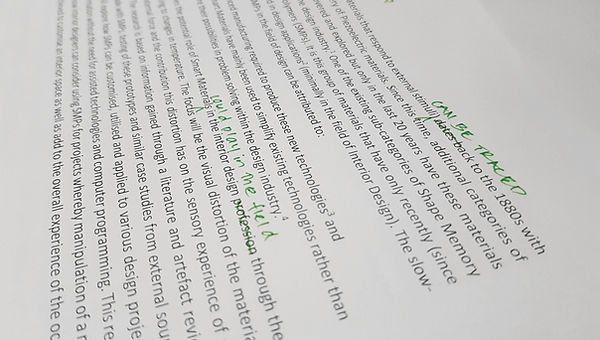 CAN BE TRACED
materials that respond to external stimulus dates back to the 1880s with
of Piezoelectric materials. Since this time, additional categories of
and explored but only in the last 20 years have these materials
design industry. One of the existing sub-categories of Shape Memory
Polymers (SMPs). It is this group of materials that have only recently (since
in design applications (minimally in the field of Interior Design). The slow-
SMPs in the field of design can be attributed to:
and manufacturing required to produce these new technologies³ and
Smart Materials have mainly been used to simplify existing technologies rather than
their possibilities in problem solving within the design industry.⁴
could play in the field
the potential role of Smart Materials in the interior design profession through the
to changes in temperature. The focus will be the visual distortion of the materia
form and the contribution this distortion has on the sensory experience of
The research is based on information gained through a literature and artefact revi
testing of these prototypes and similar case studies from external sour
explore how SMPs can be customised, utilised and applied to various design proje
without the need for assisted technologies and computer programming. This re
interior designers can consider using SMPs for projects whereby manipulation of a
to customise an interior space as well as add to the overall experience of the oc